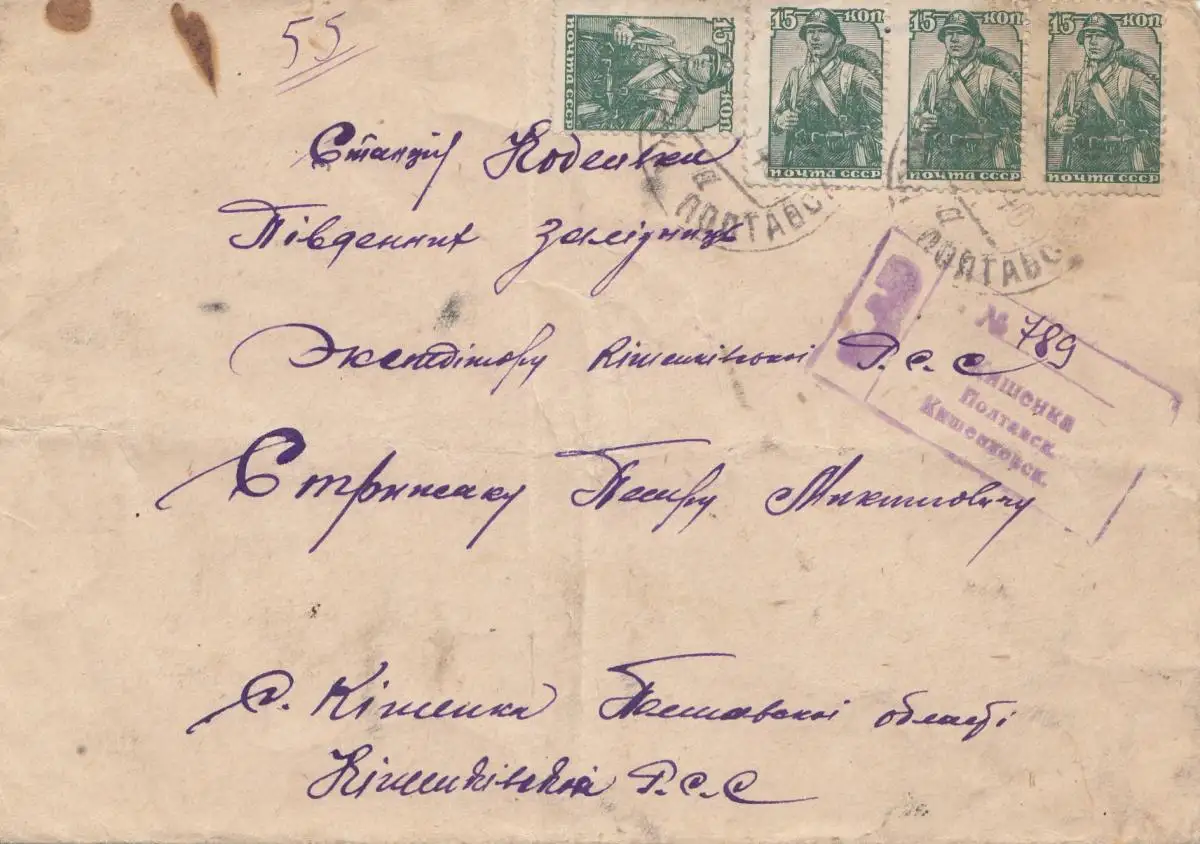 55
15 КОП
ПОЧТА СССР
15 КОП
ПОЧТА СССР
15 КОП
ПОЧТА СССР
15 КОП
ПОЧТА СССР
ПОЛТАВС
40
ПОЛТАВС
Станції Кобеляки
Південних залізниць
З
№ 789
Кишенка
Полтавск.
Кишеньковск.
Экспедітору Кішенківської Р.С.С
Стрижаку Петру Микитовичу
с. Кішенка Полтавської області
Кішенківській Р.С.С